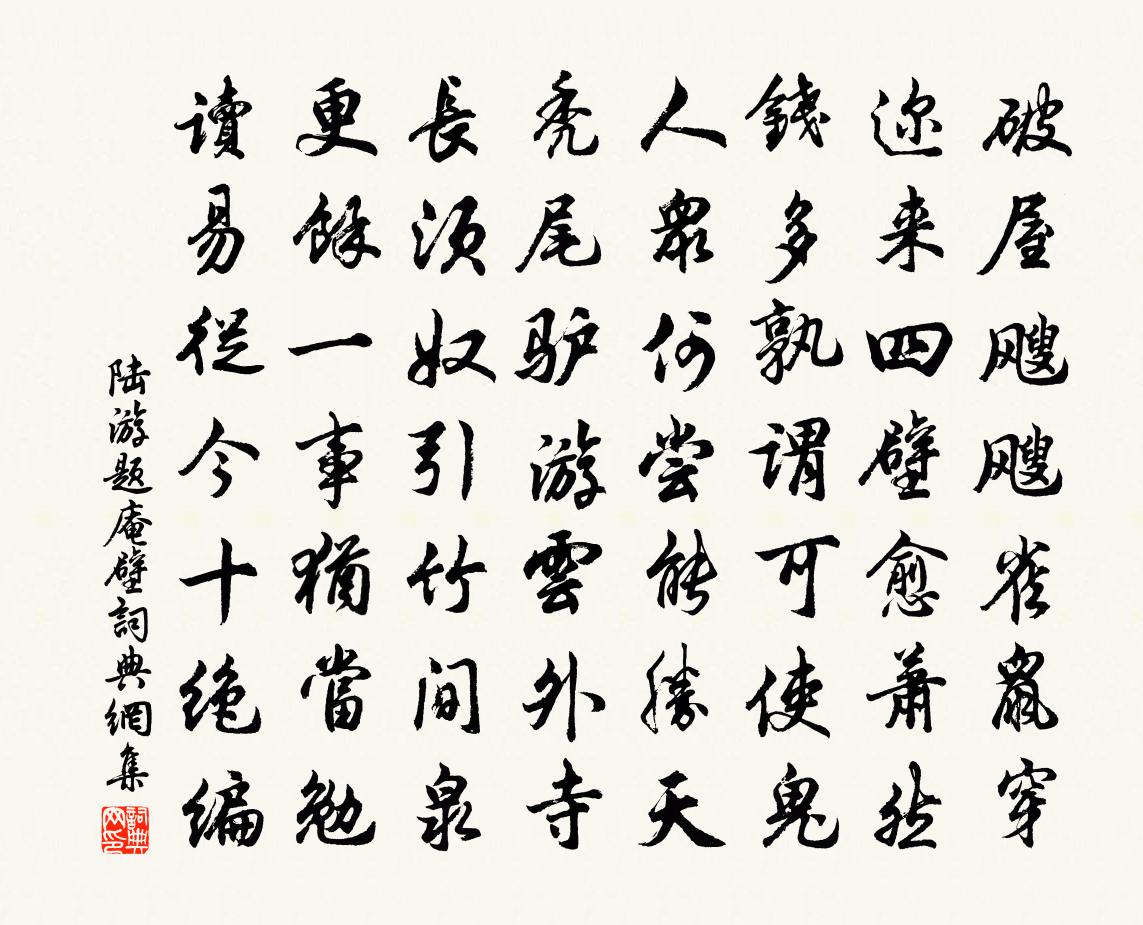 破屋颼颼雀鼠穿
迩来四壁愈萧然
錢多孰谓可使鬼
人眾何尝能勝天
秃尾驴游雲外寺
長须奴引竹间泉
更餘一事猶當勉
讀易從今十绝编
陆游题庵壁詞典網集
詞典网印